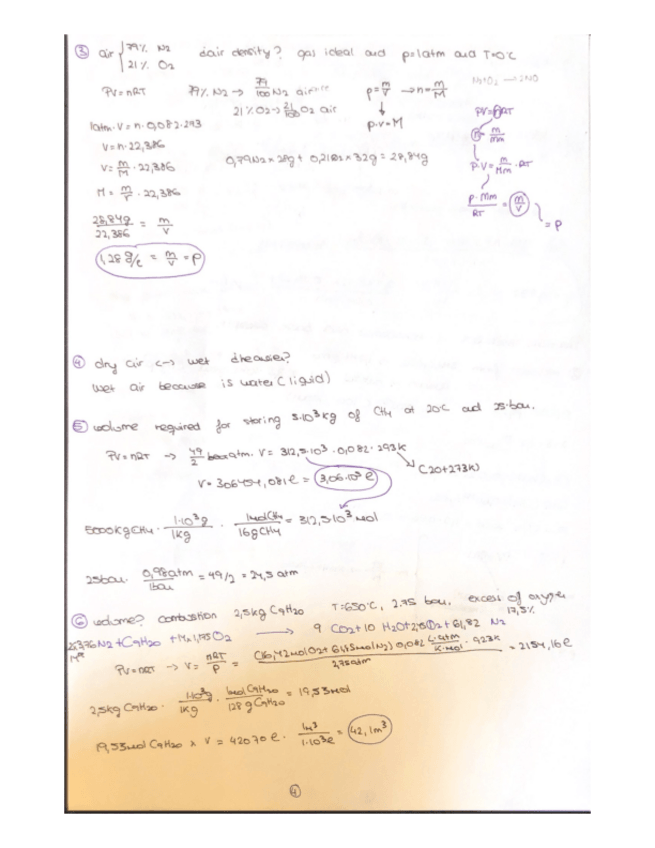 ③ air { 79% N2
21% O2
dair density? gas ideal and p=1atm and T=0°c
PV=nRT
79% N2 → 79/100 N2 air
21% O2 → 21/100 O2 air
ρ=m/V → n=m/M
p.v=M
1atm.V=n.0,082.273
V=n.22,386
V=m/M.22,386
M=m/V.22,386
0,79N2 x 28g + 0,21O2 x 32g = 28,84g
28,84g/22,386 = m/V
1,28 g/l = m/V = ρ
PV=nRT
n=m/Mm
P.V=m/Mm.RT
P.Mm/RT = m/V = ρ
④ dry air <-> wet
wet air because is water (liquid)
⑤ volume required for storing 5.10³kg of CH4 at 20°C and 25 bar.
PV=nRT → 49/2 atm. V= 312,5.10³.0,082.293K
(20+273K)
V= l = 3,06.10⁵ l
5000KgCH4. 1.10³g/1Kg . 1molCH4/16gCH4 = 312,5.10³mol
25bar. 0,98atm/1bar = 49/2 = 24,5 atm
⑥ volume? combustion 2,5kg C9H20 T=650°C, 2.75 bar, excess of oxygen
17,5%
N2 + C9H20 + 14x1,175O2 → 9 CO2 + 10 H2O + O2 + 61,82 N2
PV=nRT → V= nRT/P = 0,082 . 923K / 2,75atm = 2154,16 l
2,5kg C9H20. 1.10³g/1Kg . 1mol C9H20/128g C9H20 = 19,53mol
19,53mol C9H20 x V = 42070 l. 1m³/1.10³l = 42,1m³
④